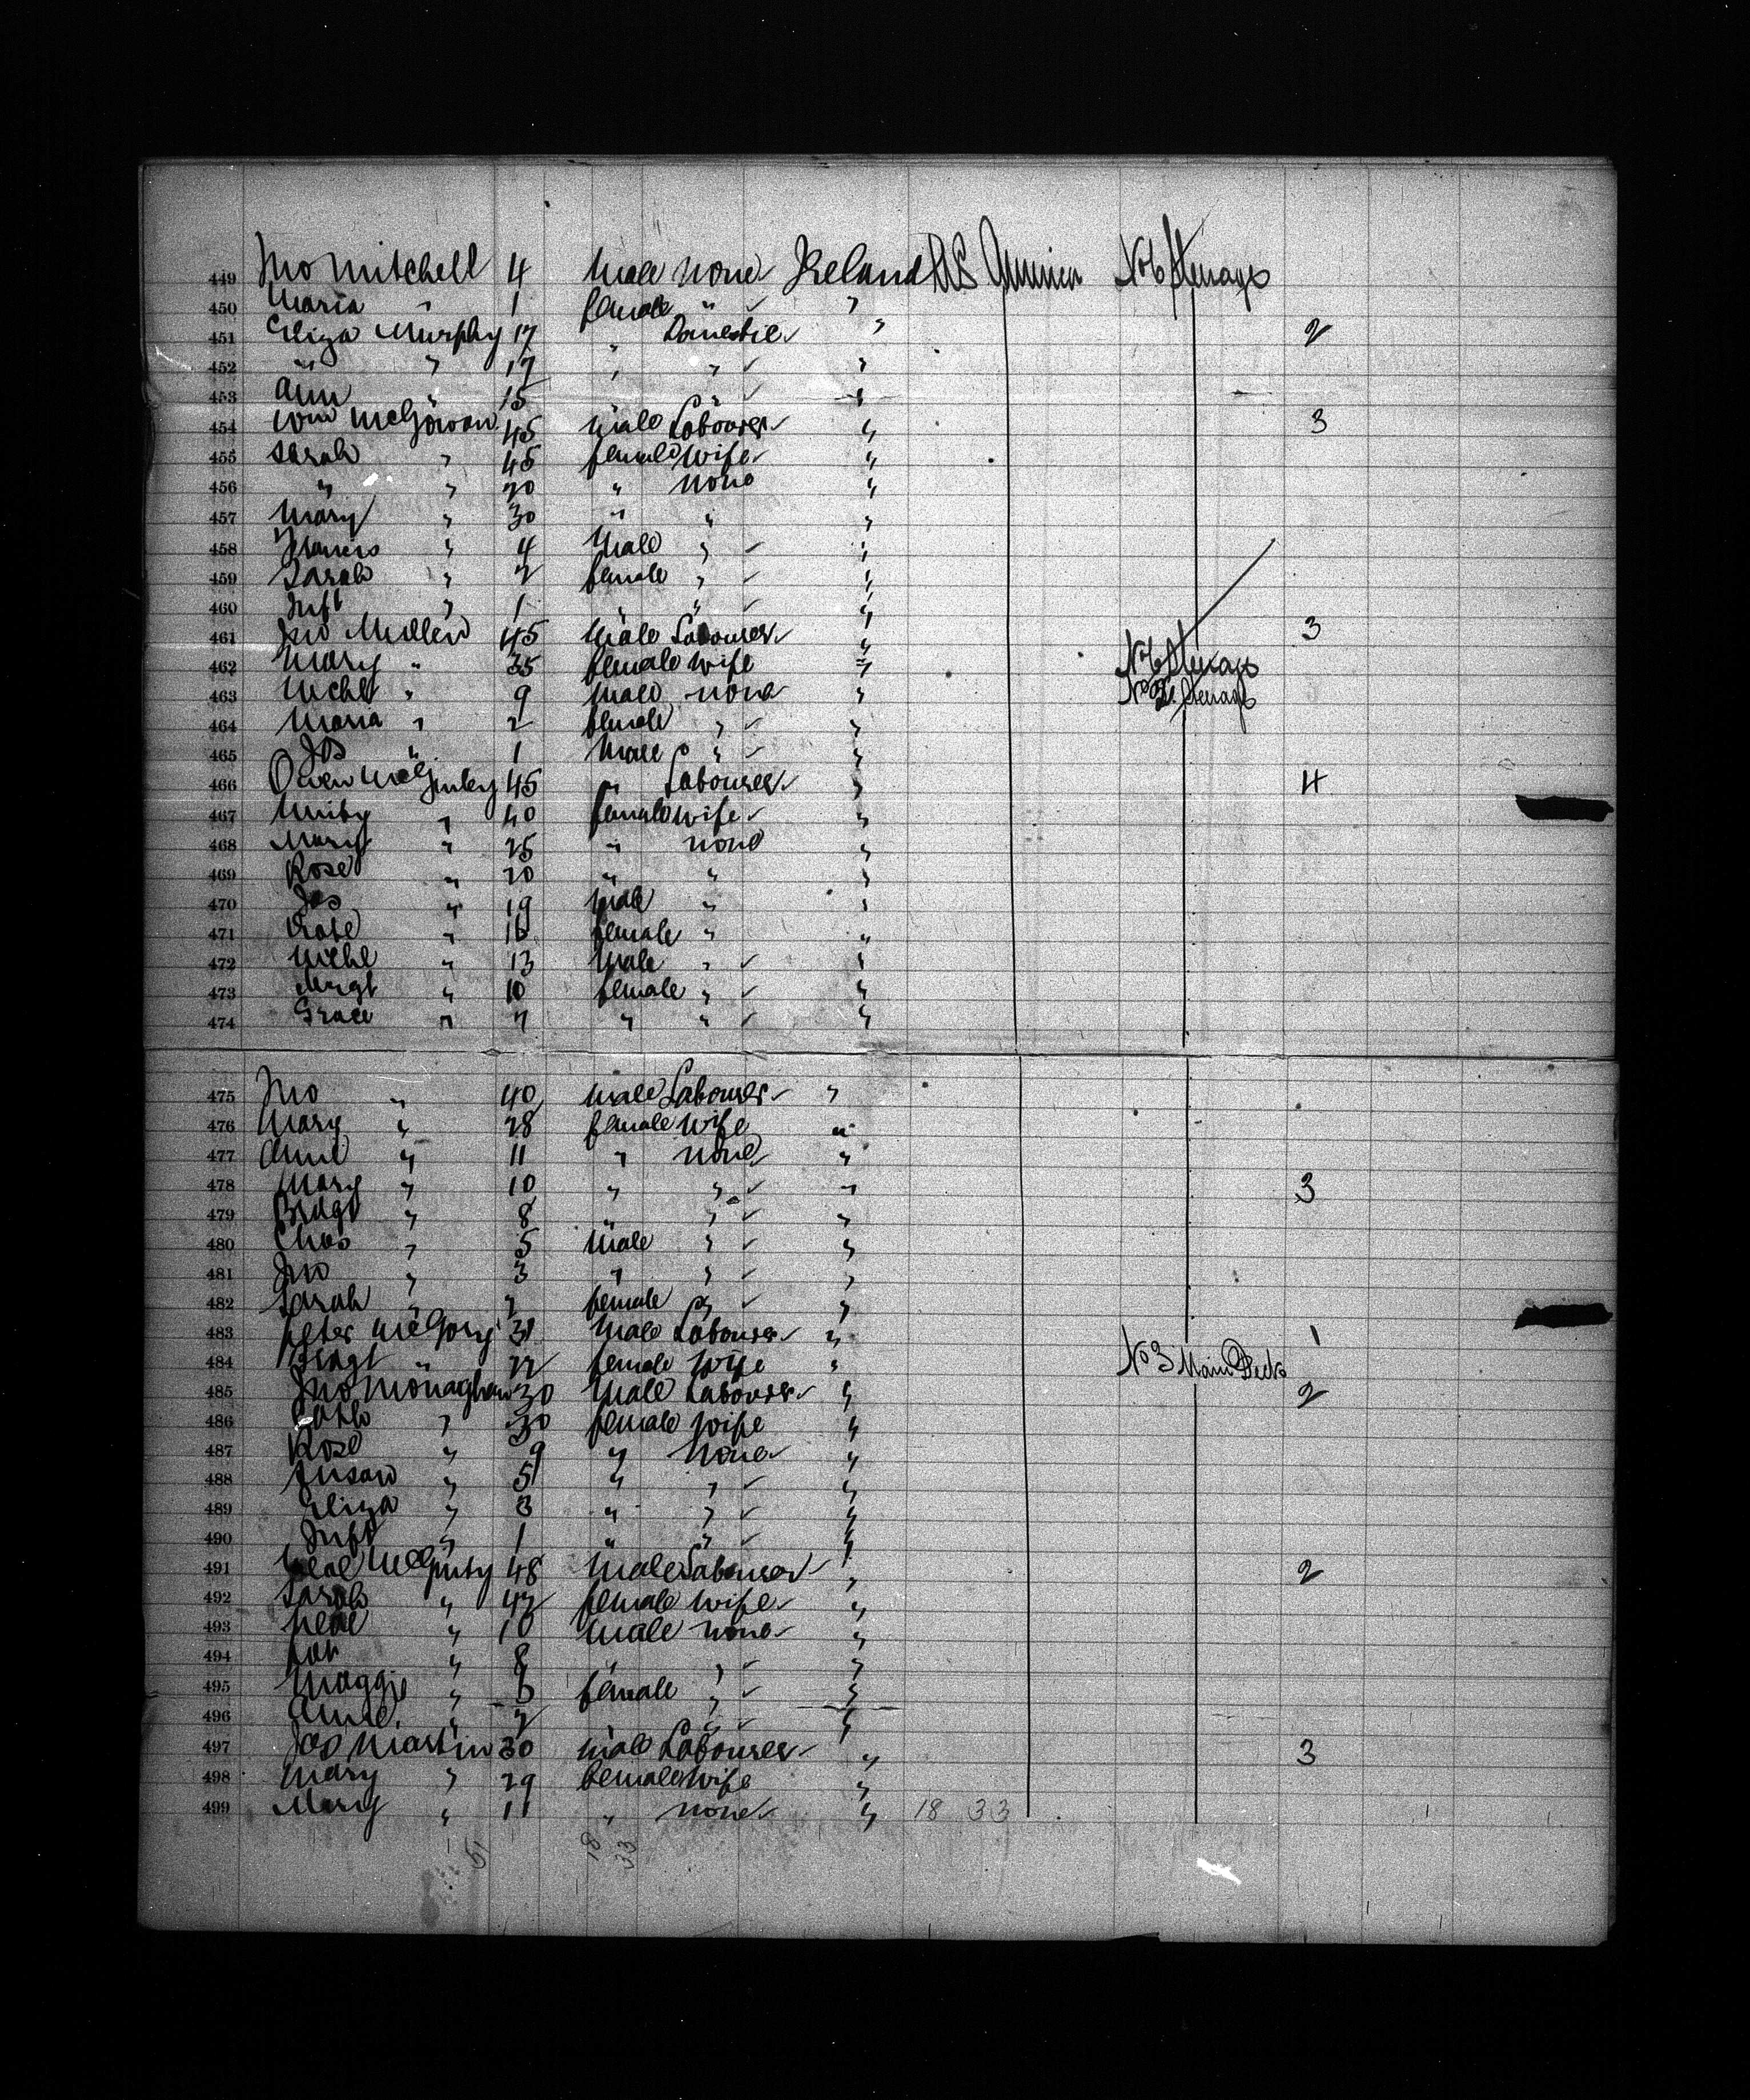 449 Jno Mitchell 4 Male none Ireland U.S. America No 6 Steerage
450 Maria " 1 female " "
451 Eliza Murphy 17 " Domestic " 2
452 " " 17 " " "
453 Ann " 15 " " "
454 Wm McGowan 45 Male Labourer " 3
455 Sarah " 45 female Wife "
456 " " 20 " None "
457 Mary " 30 " " "
458 Francis " 4 Male " "
459 Sarah " 2 female " "
460 Inft " 1 " " "
461 Jno Mullen 45 Male Labourer " 3
462 Mary " 35 female Wife " No 6 Steerage
463 Mchl " 9 Male none " Steerage
464 Maria " 2 female " "
465 Jos " 1 Male " "
466 Owen McGinley 45 " Labourer " 4
467 " 40 female wife "
468 Mary " 25 " none "
469 Rose " 20 " " "
470 Jas " 19 Male " "
471 " 16 female " "
472 Michl " 13 Male " "
473 Mrgt " 10 female " "
474 Grace " 7 " " "
475 Jno " 40 Male Labourer "
476 Mary " 28 female Wife "
477 Anne " 11 " none "
478 Mary " 10 " " " 3
479 Bridgt " 8 " " "
480 Chas " 5 Male " "
481 Jno " 3 " " "
482 Sarah " 2 female " "
483 Peter 31 Male Labourer " 1
484 Bridgt " 22 female Wife " No 3 Main Deck
485 Jno Monaghan 30 Male Labourer " 2
486 " 30 female Wife "
487 Rose " 9 " None "
488 Susan " 5 " " "
489 Eliza " 3 " " "
490 Inft " 1 " " "
491 Neal McGinty 48 Male Labourer " 2
492 Sarah " 42 female Wife "
493 Neal " 10 Male none "
494 Pat " 8 " " "
495 Maggie " " female " "
496 Anne " 2 " " "
497 Jas Martin 30 Male Labourer " 3
498 Mary " 29 female Wife "
499 Mary " 11 " none " 18 33
51 18 33